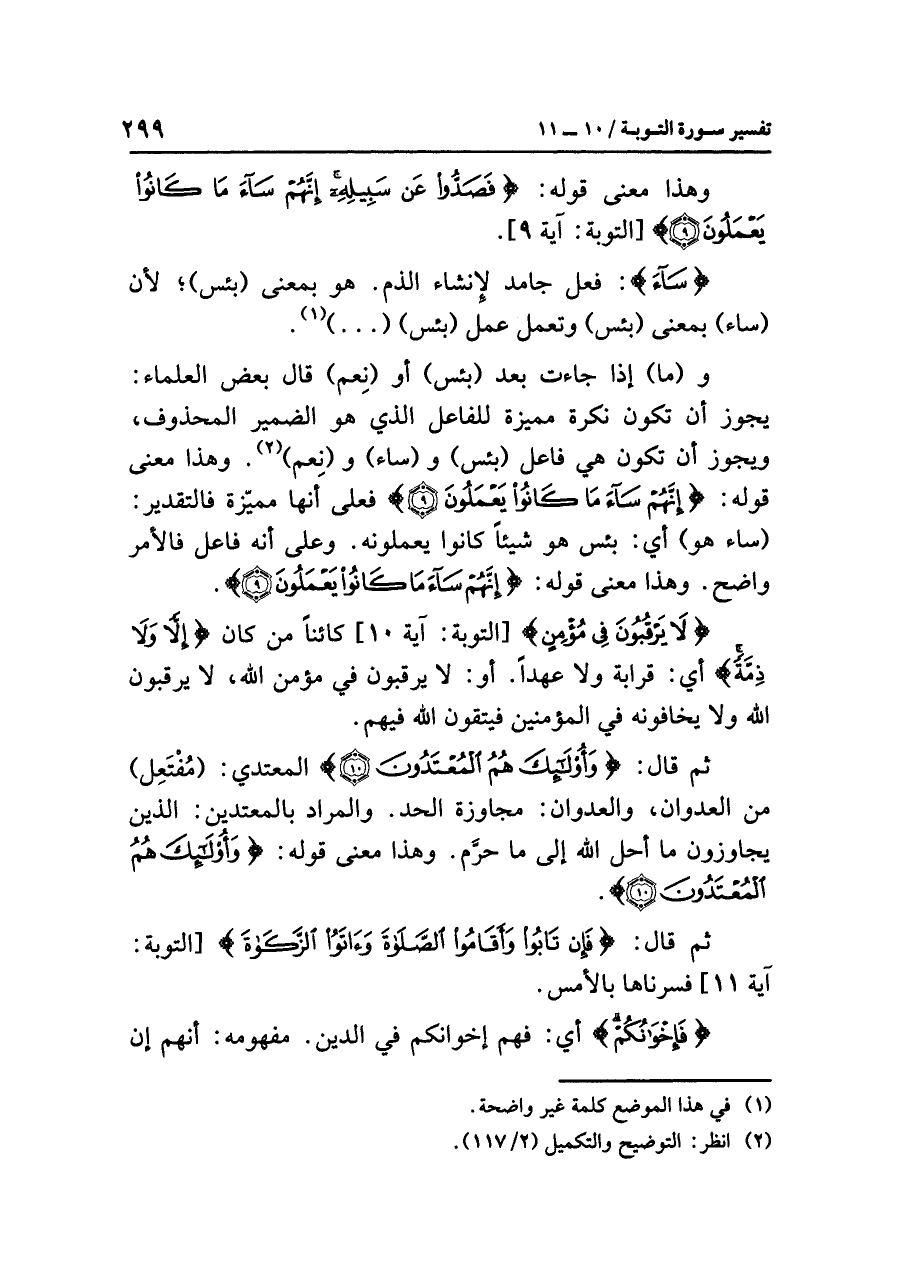 تفسير سورة التوبة / ١٠ ـ ١١ ٢٩٩
وهذا معنى قوله: ﴿ فَصَدُّوا۟ عَن سَبِيلِهِۦٓۚ إِنَّهُمْ سَآءَ مَا كَانُوا۟
يَعْمَلُونَ ۝٩﴾ [التوبة: آية ٩].
﴿سَآءَ﴾: فعل جامد لإنشاء الذم. هو بمعنى (بئس)؛ لأن
(ساء) بمعنى (بئس) وتعمل عمل (بئس) (. . .)(١).
و (ما) إذا جاءت بعد (بئس) أو (نِعم) قال بعض العلماء:
يجوز أن تكون نكرة مميزة للفاعل الذي هو الضمير المحذوف،
ويجوز أن تكون هي فاعل (بئس) و (ساء) و (نِعم)(٢). وهذا معنى
قوله: ﴿ إِنَّهُمْ سَآءَ مَا كَانُوا۟ يَعْمَلُونَ ۝٩﴾ فعلى أنها مميّزة فالتقدير:
(ساء هو) أي: بئس هو شيئاً كانوا يعملونه. وعلى أنه فاعل فالأمر
واضح. وهذا معنى قوله: ﴿ إِنَّهُمْ سَآءَ مَا كَانُوا۟ يَعْمَلُونَ ۝٩﴾.
﴿ لَا يَرْقُبُونَ فِى مُؤْمِنٍ﴾ [التوبة: آية ١٠] كائناً من كان ﴿ إِلًّا وَلَا
ذِمَّةًۚ﴾ أي: قرابة ولا عهداً. أو: لا يرقبون في مؤمن الله، لا يرقبون
الله ولا يخافونه في المؤمنين فيتقون الله فيهم.
ثم قال: ﴿ وَأُو۟لَٰٓئِكَ هُمُ ٱلْمُعْتَدُونَ ۝١٠﴾ المعتدي: (مُفْتَعِل)
من العدوان، والعدوان: مجاوزة الحد. والمراد بالمعتدين: الذين
يجاوزون ما أحل الله إلى ما حرَّم. وهذا معنى قوله: ﴿ وَأُو۟لَٰٓئِكَ هُمُ
ٱلْمُعْتَدُونَ ۝١٠﴾.
ثم قال: ﴿ فَإِن تَابُوا۟ وَأَقَامُوا۟ ٱلصَّلَوٰةَ وَءَاتَوُا۟ ٱلزَّكَوٰةَ ﴾ [التوبة:
آية ١١] فسرناها بالأمس.
﴿ فَإِخْوَٰنُكُمْ﴾ أي: فهم إخوانكم في الدين. مفهومه: أنهم إن
(١) في هذا الموضع كلمة غير واضحة.
(٢) انظر: التوضيح والتكميل (٢/ ١١٧).